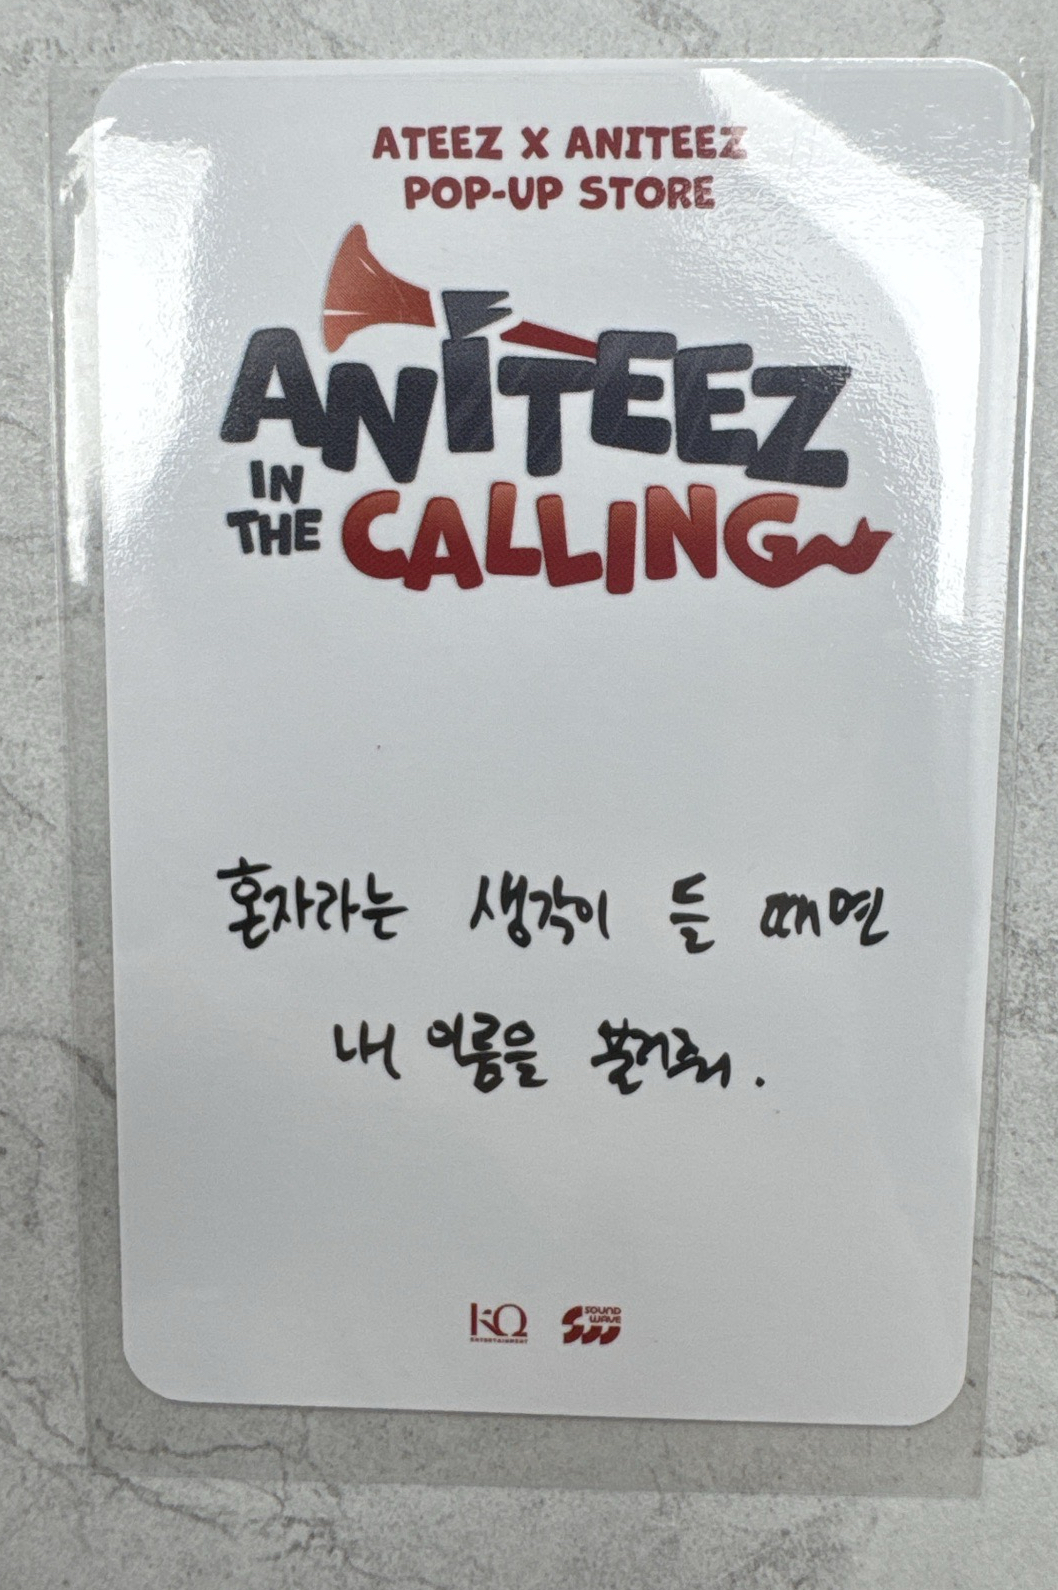 ATEEZ X ANITEEZ
POP-UP STORE
ANITEEZ
IN THE CALLING
혼자라는 생각이 들 때면
내 이름을 불러줘.
KQ ENTERTAINMENT
SOUND WAVE